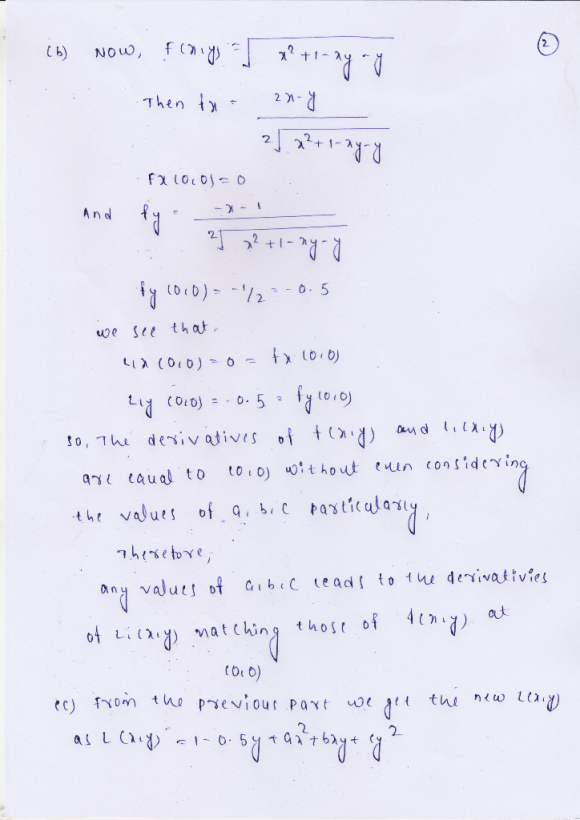 (2)
(b) NOW, F(x,y) = √(x² + 1 - xy - y)
Then fx = (2x - y) / (2√(x² + 1 - xy - y))
Fx(0,0) = 0
And fy = (-x - 1) / (2√(x² + 1 - xy - y))
fy (0,0) = -1/2 = -0.5
we see that.
L1x (0,0) = 0 = fx (0,0)
L1y (0,0) = -0.5 = fy(0,0)
so, The derivatives of f(x,y) and L1(x,y)
are equal to (0,0) without even considering
the values of a, b, c particularly,
Therefore,
any values of a,b,c leads to the derivativies
of L1(x,y) matching those of f(x,y) at
(0,0)
(c) From the previous part we get the new L(x,y)
as L(x,y) = 1 - 0.5y + ax² + bxy + cy²